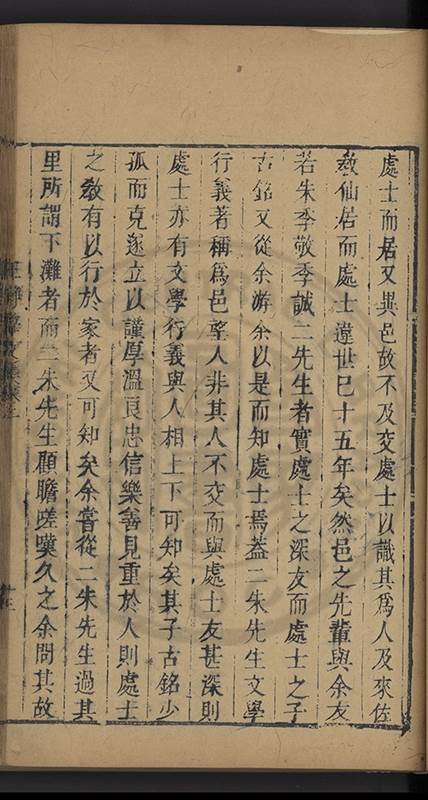 處士而居又異邑故不及交處士以識其爲人及來佐
教仙居而處士違世已十五年矣然邑之先輩與余友
若朱季敬季誠二先生者實處士之深友而處士之子
古銘又從余游余以是而知處士焉蓋二朱先生文學
行義著稱爲邑望人非其人不交而與處士友甚深則
處士亦有文學行義與人相上下可知矣其子古銘少
孤而克遂立以謹厚溫良忠信樂善見重於人則處士
之教有以行於家者又可知矣余嘗從二朱先生過其
里所謂下灘者而二朱先生顧瞻嗟嘆久之余問其故